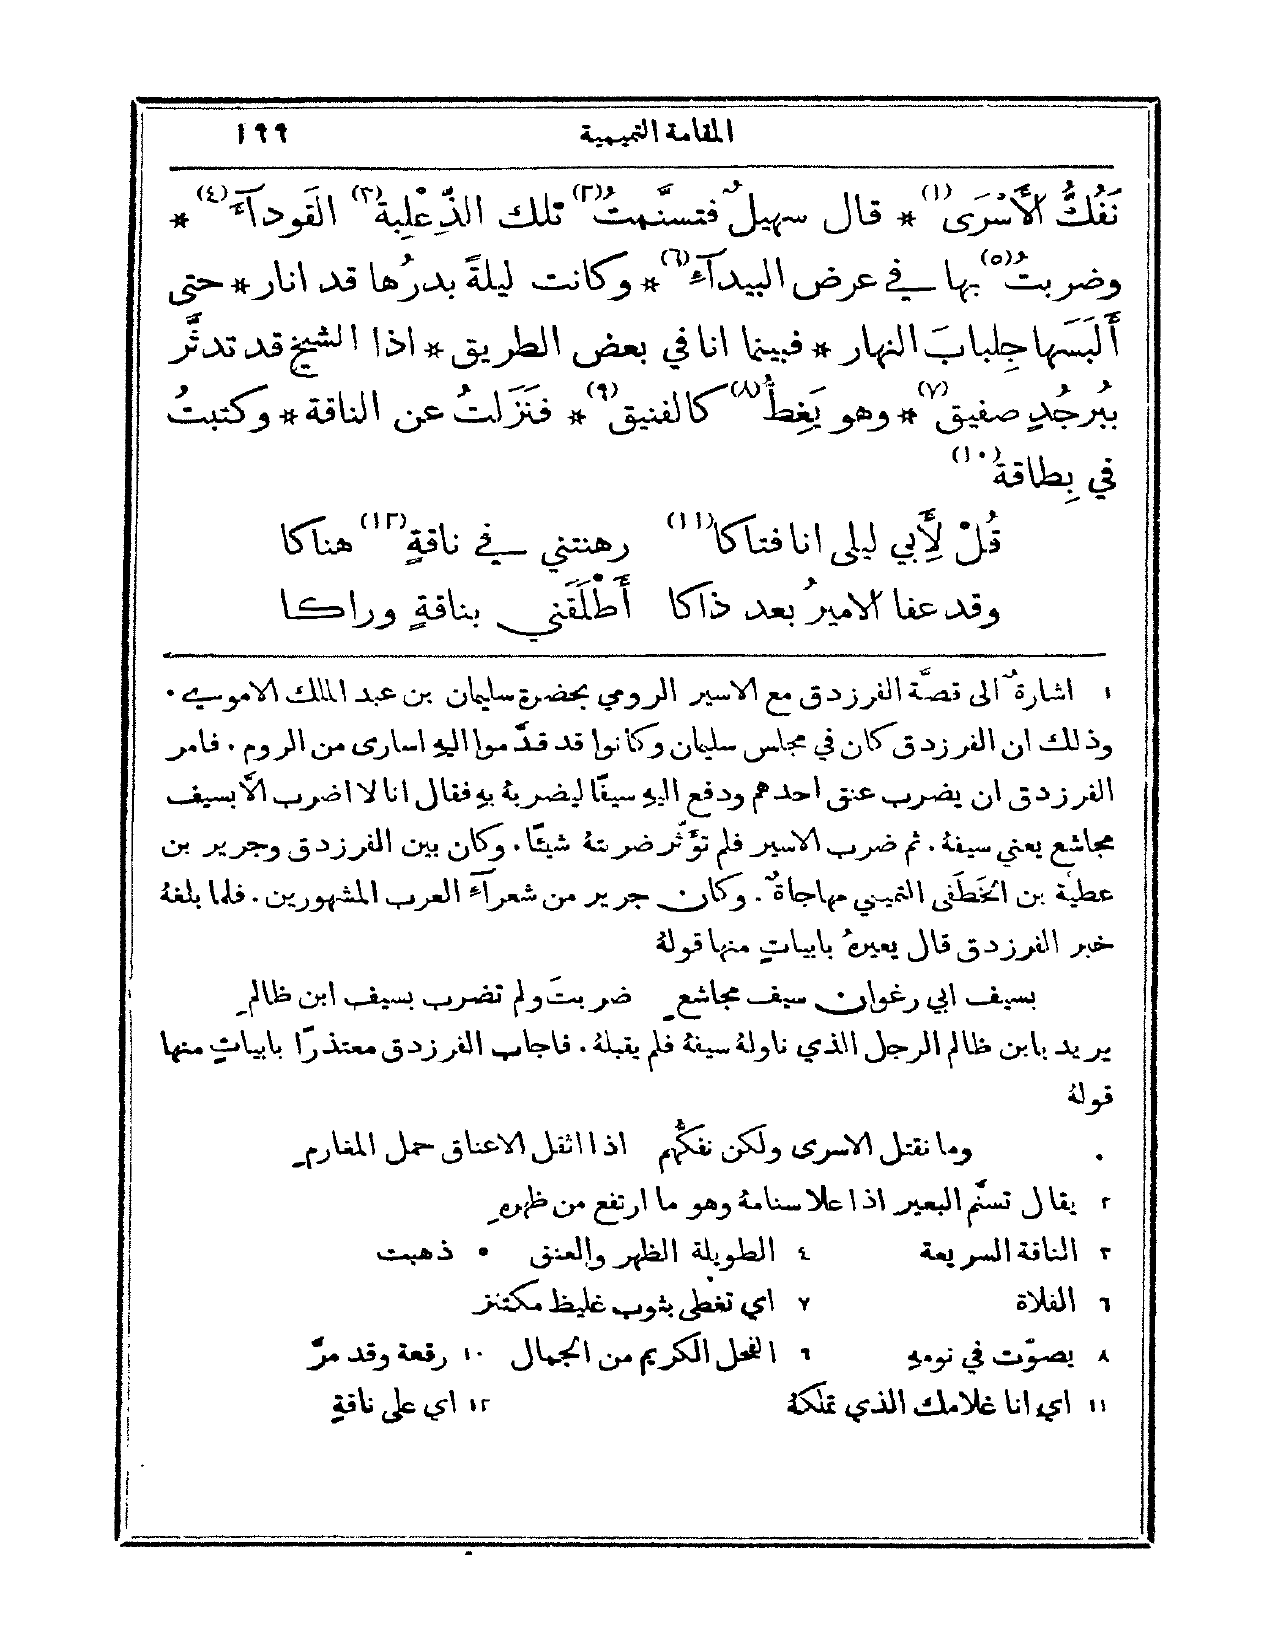 المقامة التميمية ١٩٩
نَفُكُّ الأَسْرَى(١) * قال سهيلٌ فتسنَّمتُ(٢) تلك الذِّعْلِبة(٣) القَوداءَ(٤) *
وضربتُ(٥) بها في عرض البيدآء(٦) * وكانت ليلةً بدرُها قد انار * حتى
أَلبَسَها جِلبابَ النهار * فبينما انا في بعض الطريق * اذا الشيخ قد تدثَّر
ببُرجُدٍ صفيق(٧) * وهو يَغِطُّ(٨) كالفنيق(٩) * فنَزَلتُ عن الناقة * وكتبتُ
في بِطاقة(١٠)
قُلْ لأَبي ليلى انا فتاكا(١١) رهنتني في ناقةٍ(١٢) هناكا
وقد عفا الاميرُ بعد ذاكا أَطْلَقَني بناقةٍ وراكا
١ اشارةٌ الى قصَّة الفرزدق مع الاسير الرومي بحضرة سليمان بن عبد الملك الاموي ٠
وذلك ان الفرزدق كان في مجلس سليمان وكانوا قد قدَّموا اليهِ اسارى من الروم ٠ فامر
الفرزدق ان يضرب عنق احدهم ودفع اليهِ سيفًا ليضربهُ بهِ فقال انا لا اضرب الَّا بسيف
مجاشع يعني سيفهُ ٠ ثم ضرب الاسير فلم تؤَثّر ضربتهُ شيئًا ٠ وكان بين الفرزدق وجرير بن
عطيَّة بن الخَطَفَى التميمي مهاجاةٌ ٠ وكان جرير من شعرآء العرب المشهورين ٠ فلما بلغهُ
خبر الفرزدق قال يعيرهُ بابياتٍ منها قولهُ
بسيف ابي رغوان سيف مجاشعٍ ضربتَ ولم تضرب بسيف ابن ظالمِ
يريد بابن ظالم الرجل الذي ناولهُ سيفهُ فلم يقبلهُ ٠ فاجاب الفرزدق معتذرًا بابياتٍ منها
قولهُ
٠ وما نقتل الاسرى ولكن نفكُّهم اذا اثقل الاعناق حمل المغارمِ
٢ يقال تسنَّم البعير اذا علا سنامهُ وهو ما ارتفع من ظهرهِ
٣ الناقة السريعة ٤ الطويلة الظهر والعنق ٥ ذهبت
٦ الفلاة ٧ اي تغطى بثوب غليظ مكتنز
٨ يصوّت في نومهِ ٩ الفحل الكريم من الجمال ١٠ رقعة وقد مرَّ
١١ اي انا غلامك الذي تملكهُ ١٢ اي على ناقةٍ